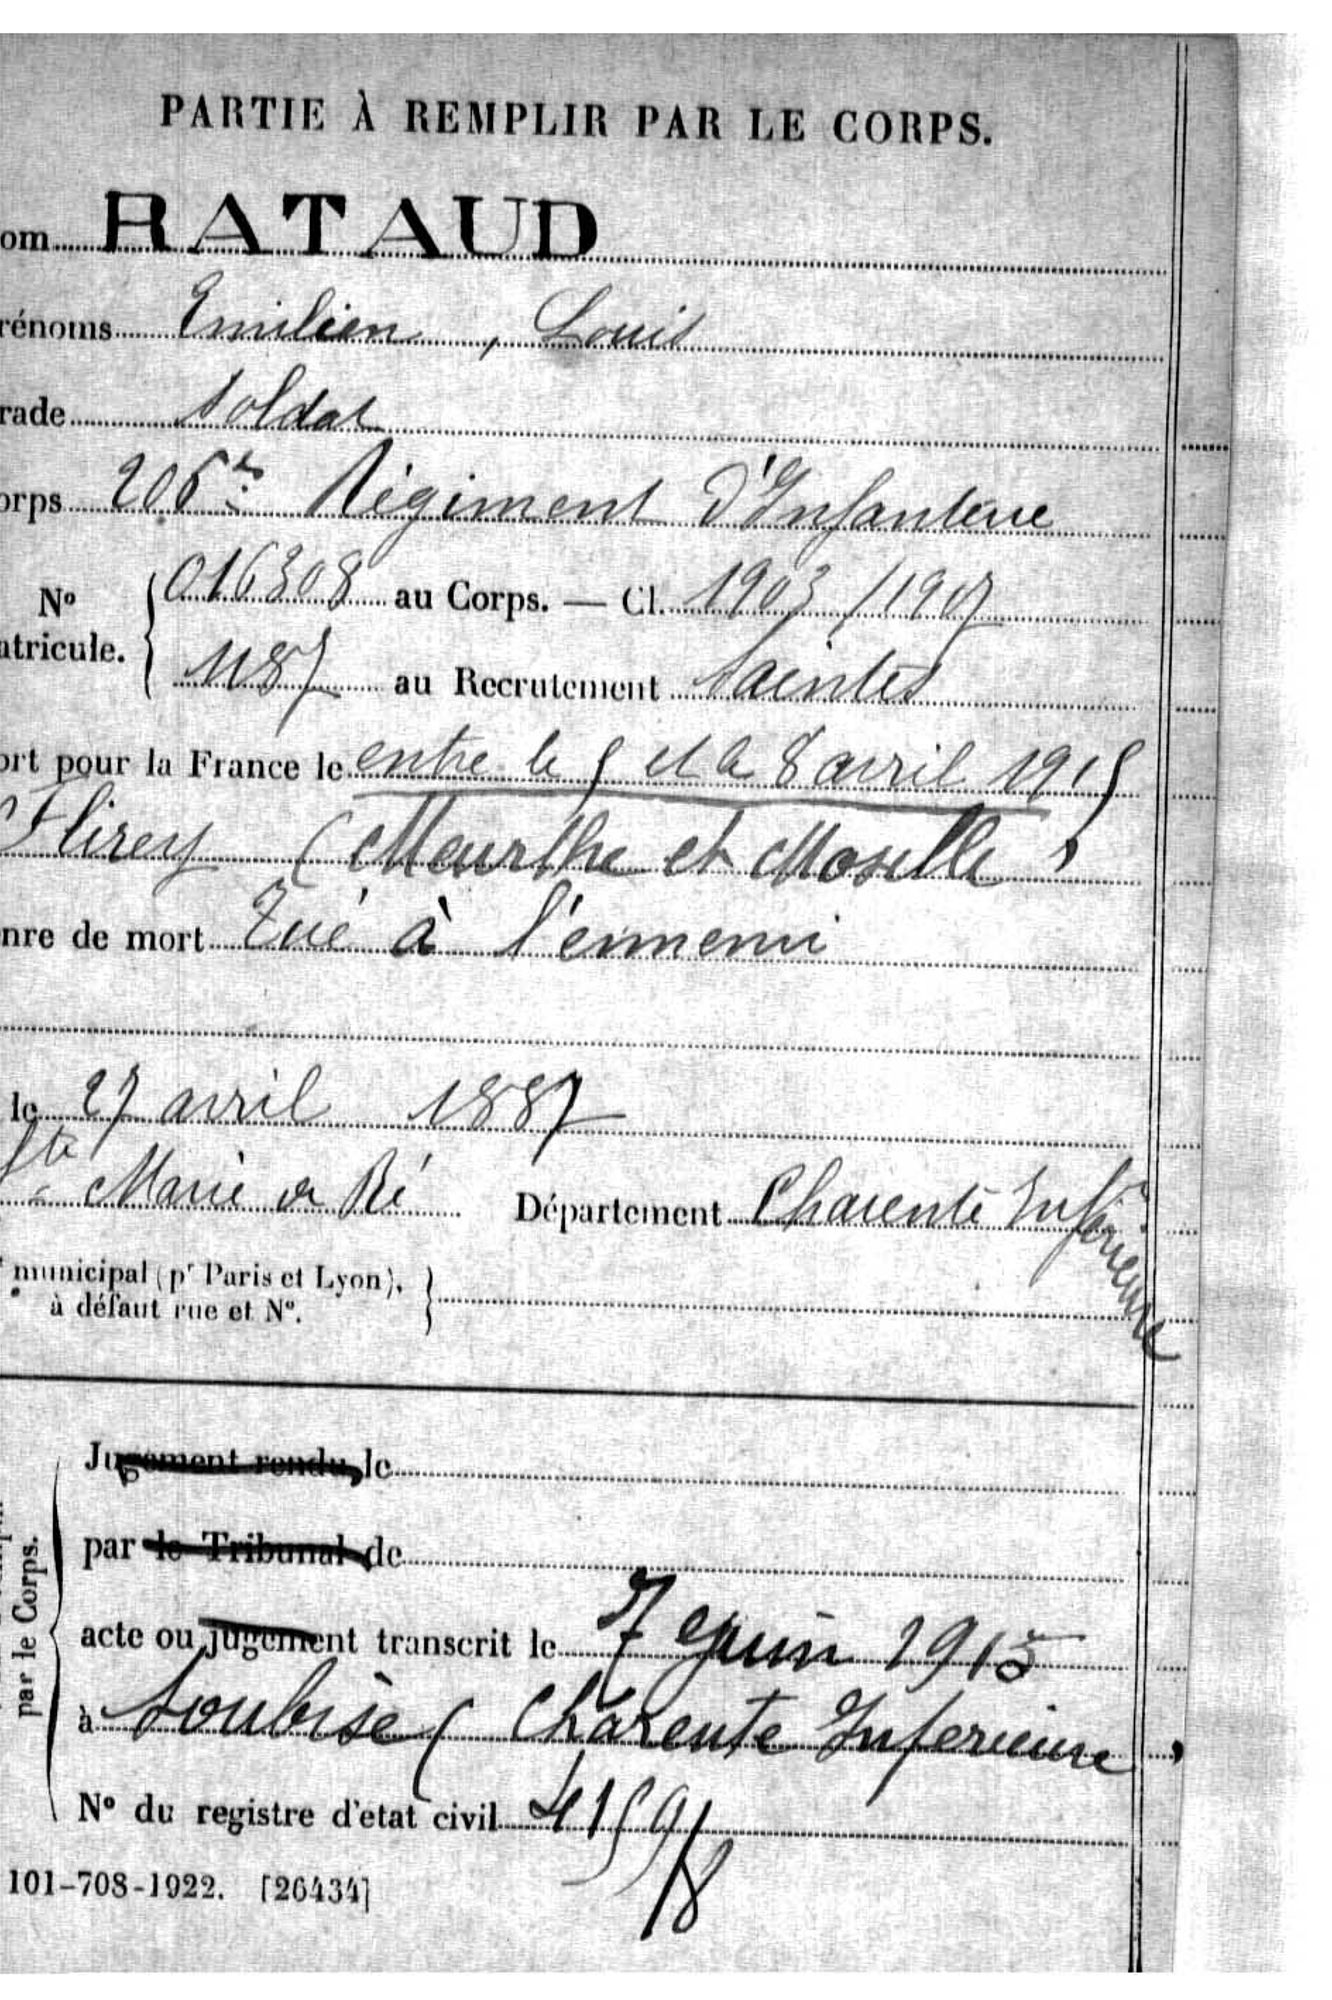 PARTIE À REMPLIR PAR LE CORPS.
om RATAUD
rénoms Emilien, Louis
rade Soldat
orps 206e Régiment d'Infanterie
No 016308 au Corps. — Cl. 1903/1907
atricule. 1187 au Recrutement Saintes
ort pour la France le entre le 5 et le 8 avril 1915
Flirey (Meurthe et Moselle)
nre de mort Tué à l'ennemi
le 27 avril 1887
Ste Marie de Ré Département Charente Inférieure
municipal (pr Paris et Lyon),
à défaut rue et No.
Jugement rendu le
par le Tribunal de
par le Corps.
acte ou jugement transcrit le 7 juin 1915
à Soubise (Charente Inferieure)
No du registre d'etat civil 4159/8
101-708-1922. [26434]